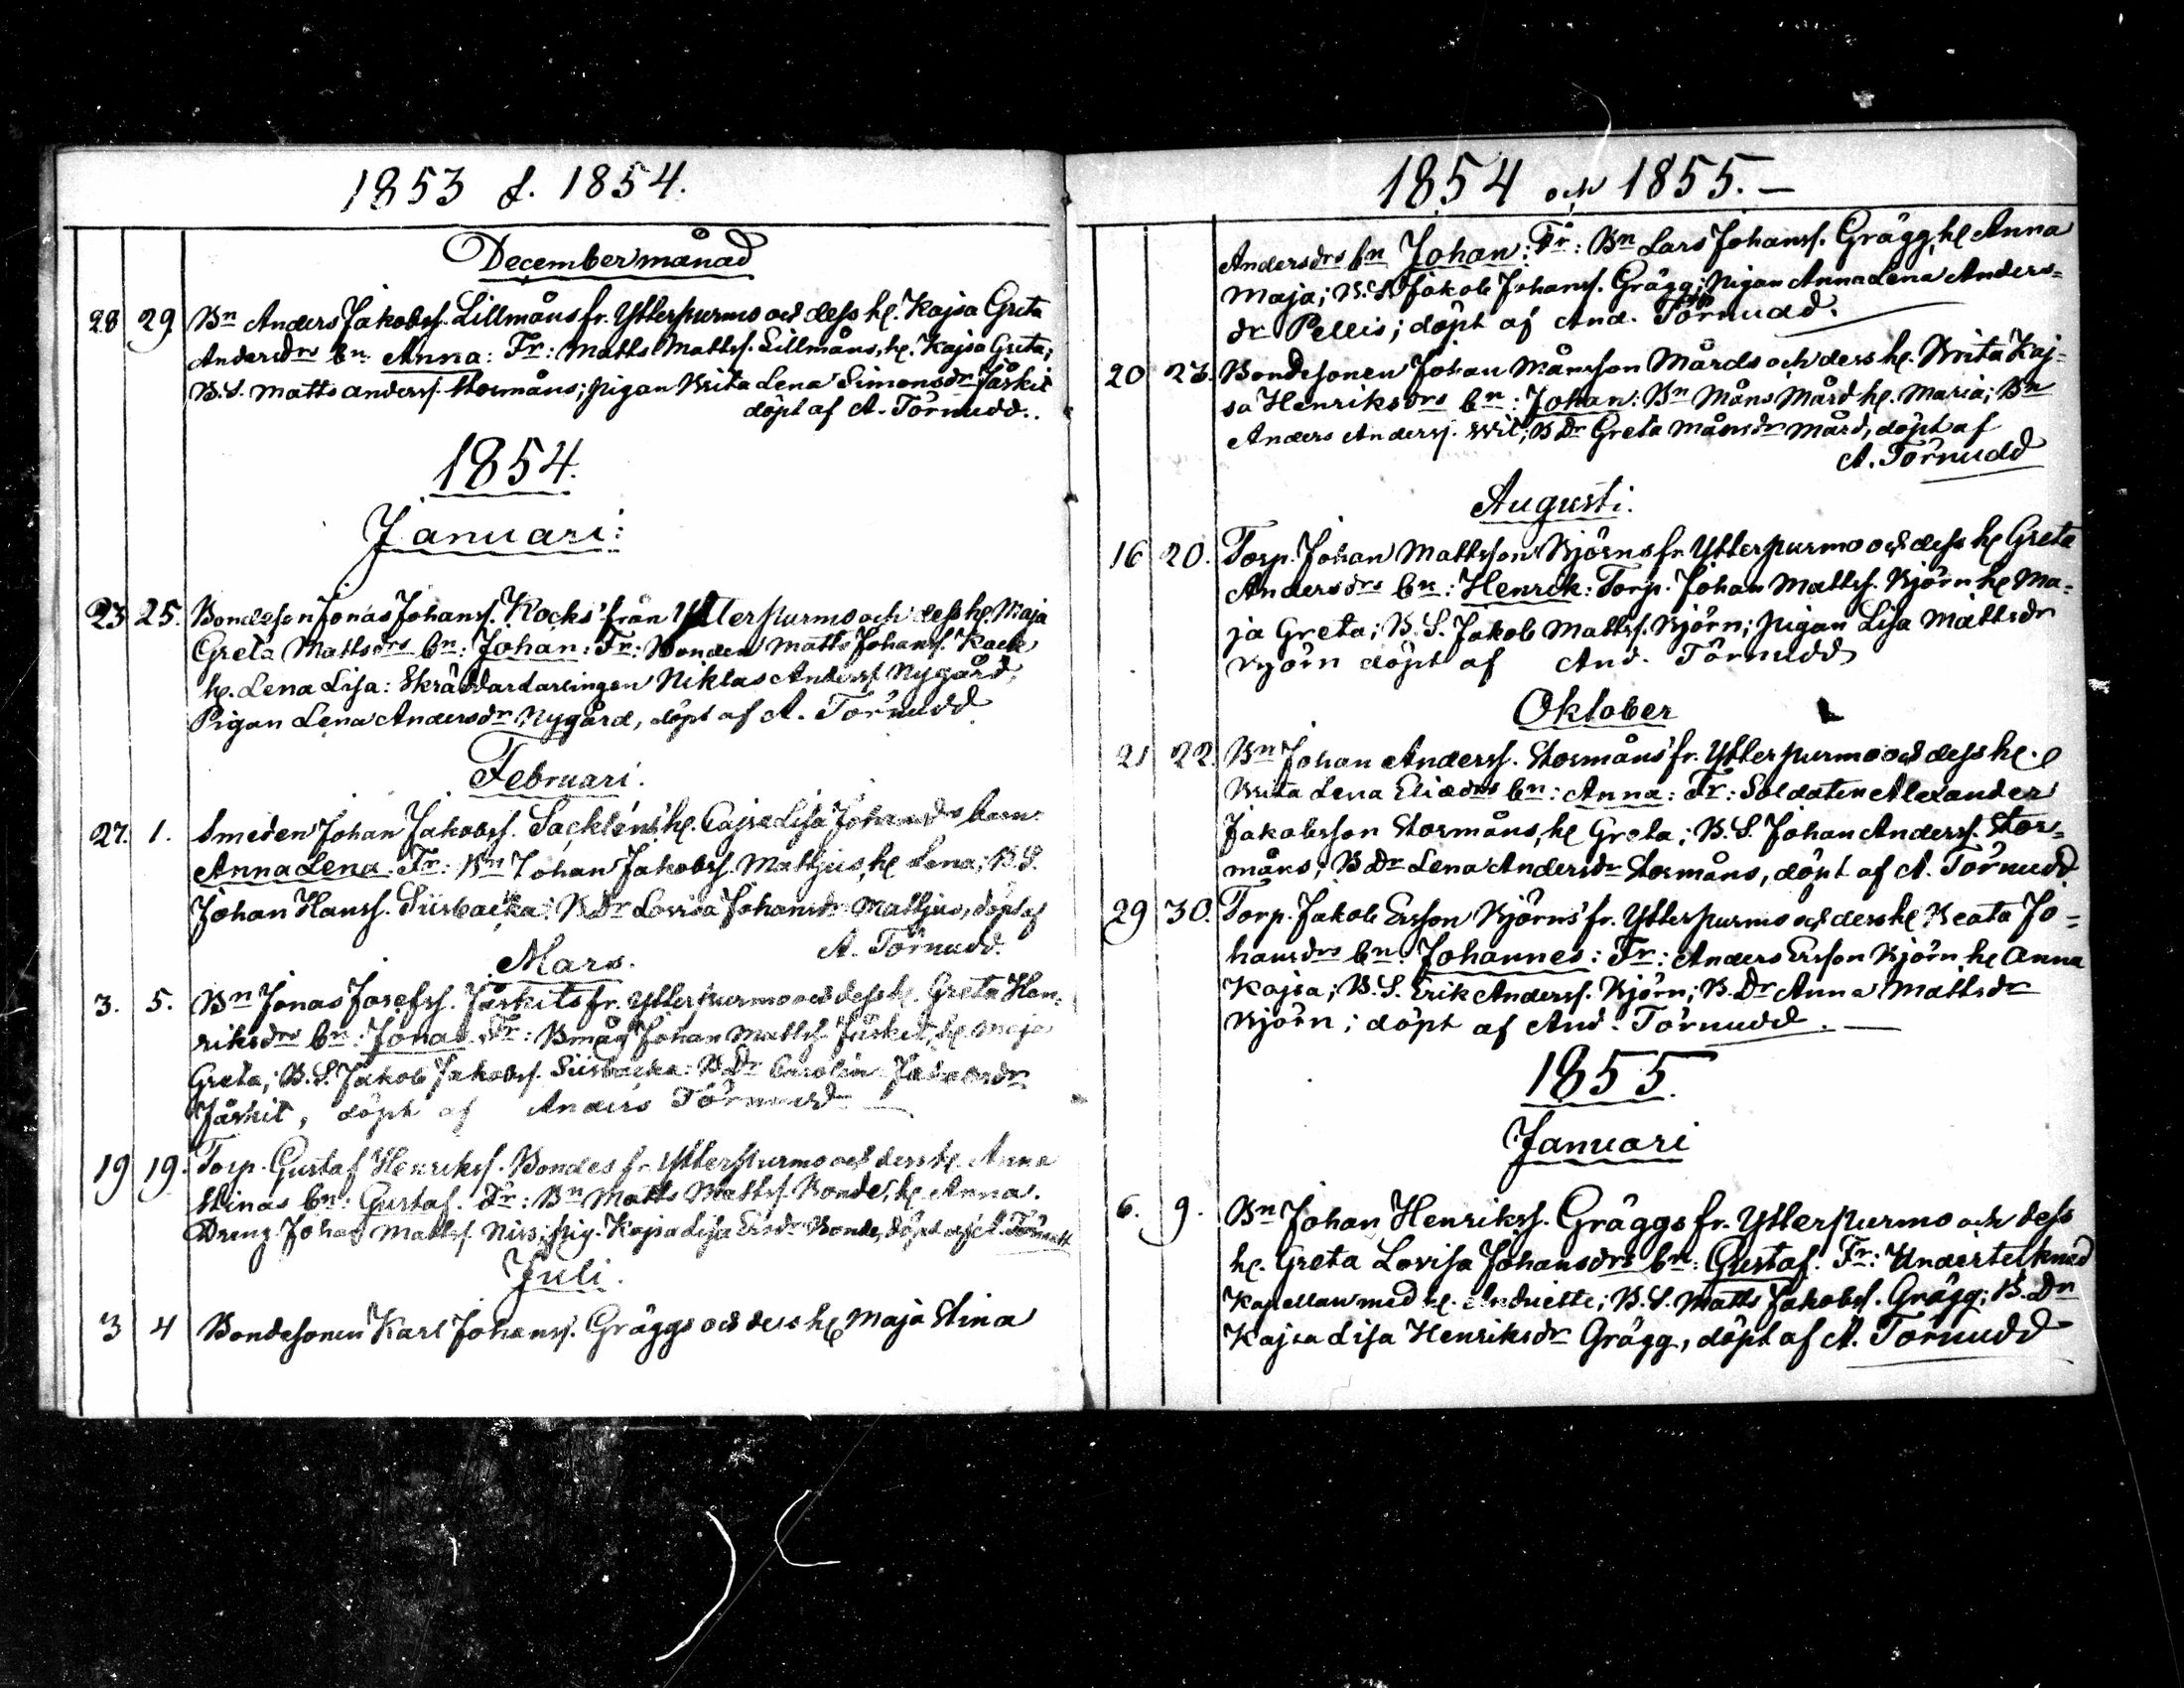 1853 o. 1854.
December månad
28 29 Bn Anders Jakobss. Lillmåns fr. Ytterpurmo och dess h. Kajsa Greta
Andersdrs bn. Anna: Fr: Matts Mattss. Lillmåns, h. Kajsa Greta;
B.S. Matts Anderss. Stormåns; pigan Brita Lena Simonsdr Jåskit
döpt af A. Törnudd.
1854.
Januari:
23 25. Bondeson Jonas Johanss. Kocks från Ytterpurmo och dess h. Maja
Greta Mattsdrs bn: Johan: Fr: Bonden Matts Johanss. Kock
h. Lena Lisa: Skräddarlärlingen Niklas Anderss. Nygård;
Pigan Lena Andersdr Nygård, döpt af A. Törnudd
Februari.
27. 1. Smeden Johan Jakobss. Sackléns h. Cajsa Lisa Johansdrs barn
Anna Lena: Fr: Bn Johan Jakobss. Mattjus, h. Lena; B.S.
Johan Hanss. Sisbacka; B.Dr Lovisa Johansdr Mattjus, döpt af
A. Törnudd.
Mars.
3. 5. Bn Jonas Josefss. Jåskits fr. Ytterpurmo och dess h. Greta Hen-
riksdrs bn: Jonas. Fr: Johan Mattss. Jåskit, h. Maja
Greta; B.S. Jakob Jakobss. Sisbacka: B.Dr Carolin Jakobsdr
Jåskit, döpt af Anders Törnudd
19 19. Torp. Gustaf Henrikss. Bondes fr. Ytterpurmo och dess h. Anna
Stinas bn: Gustaf. Fr: Bn Matts Mattss. Bonde, h. Anna.
Dreng. Johan Mattss. Niss; pig. Kajsa Lisa Ersdr Bonde, döpt af A. Törnudd
Juli.
3 4 Bondesonen Karl Johanss. Gräggs och dess h. Maja Stina
1854 och 1855.
Andersdrs bn Johan: Fr: Bn Lars Johanss. Grägg, h. Anna
Maja; B.S. Jakob Johanss. Grägg; Pigan Anna Lena Anders-
dr Pellis; döpt af And. Törnudd.
20 23. Bondesonen Johan Månsson Mårds och dess h. Brita Kaj-
sa Henriksdrs bn: Johan: Bn Måns Mård h. Maria; Bn
Anders Anderss. Wit; B Dr Greta Månsdr Mård, döpt af
A. Törnudd
Augusti.
16 20. Torp. Johan Mattsson Björns fr. Ytterpurmo och dess h. Greta
Andersdrs bn: Henrik: Torp. Johan Mattss. Björn h. Ma-
ja Greta; B.S. Jakob Mattss. Björn; pigan Lisa Mattsdr
Björn döpt af And. Törnudd
Oktober
21 22. Bn Johan Anderss. Stormåns fr. Ytterpurmo och dess h.
Brita Lena Eliædrs bn: Anna: Fr: Soldaten Alexander
Jakobsson Stormåns, h. Greta; B.S. Johan Anderss. Stor-
måns; B Dr Lena Andersdr Stormåns, döpt af A. Törnudd
29 30. Torp. Jakob Ersson Björns fr. Ytterpurmo och dess h. Beata Jo-
hansdrs bn: Johannes: Fr: Anders Ersson Björn, h. Anna
Kajsa; B.S. Erik Anderss. Björn; B.Dr Anna Mattsdr
Björn; döpt af And. Törnudd.
1855.
Januari
6. 9. Bn Johan Henrikss. Gräggs fr. Ytterpurmo och dess
h. Greta Lovisa Johansdrs bn: Gustaf. Fr: Undertecknad
Kapellan med h. ; B.S. Matts Jakobss. Grägg; B.Dr
Kajsa Lisa Henriksdr Grägg, döpt af A. Törnudd